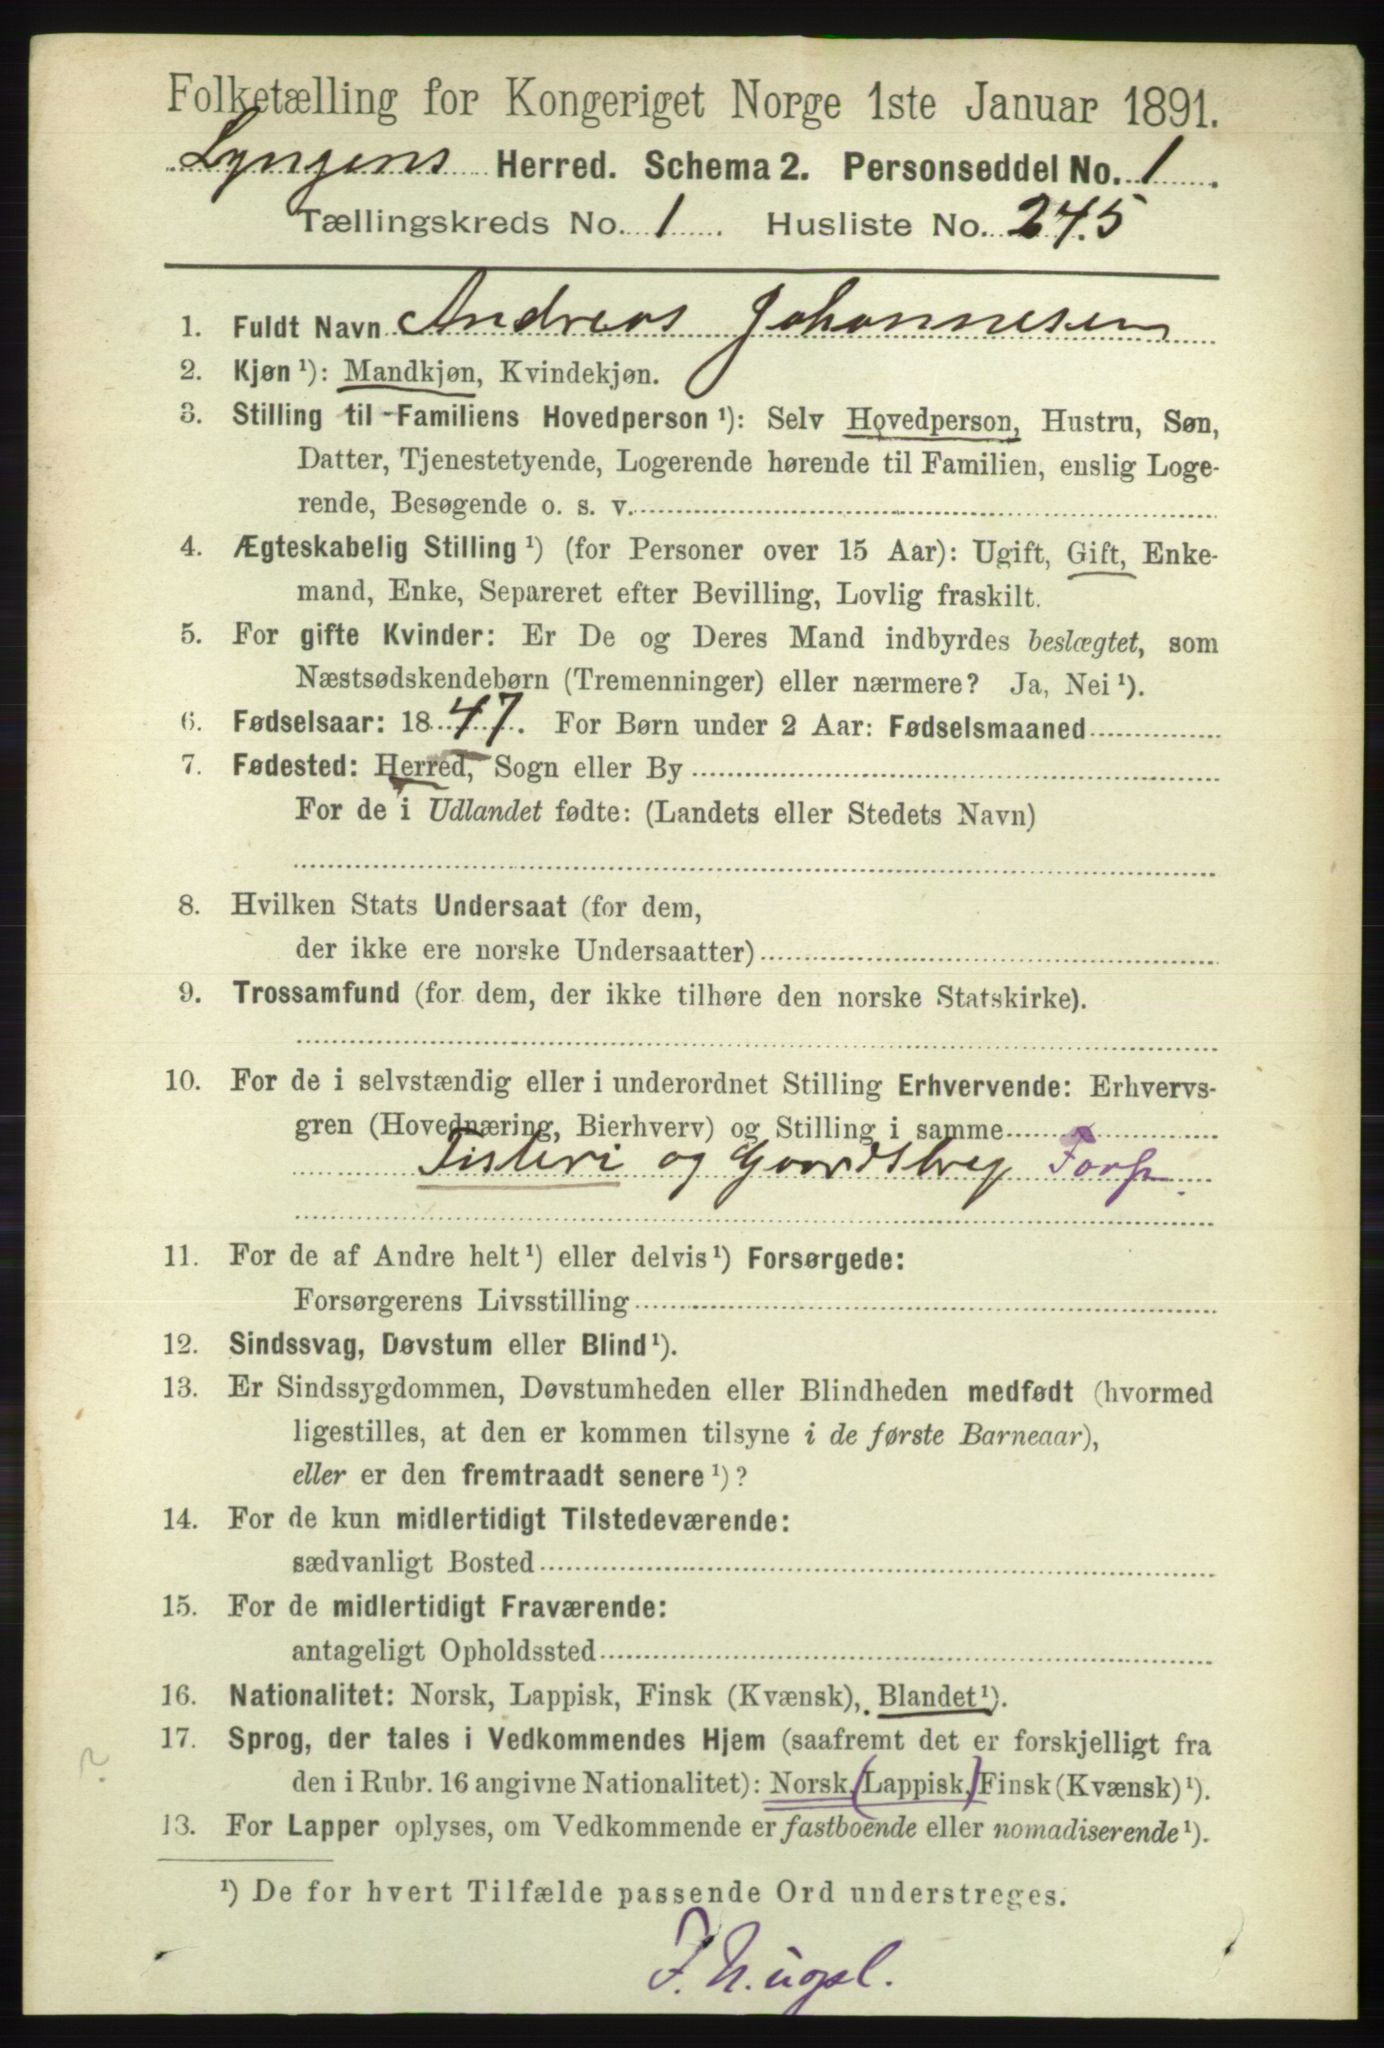 Folketælling for Kongeriget Norge 1ste Januar 1891.
Lyngens Herred. Schema 2. Personseddel No. 1
Tællingskreds No. 1 Husliste No. 245
1. Fuldt Navn Andreas Johannesen
2. Kjøn ¹): Mandkjøn, Kvindekjøn.
3. Stilling til Familiens Hovedperson ¹): Selv Hovedperson, Hustru, Søn,
Datter, Tjenestetyende, Logerende hørende til Familien, enslig Loge-
rende, Besøgende o. s. v.
4. Ægteskabelig Stilling ¹) (for Personer over 15 Aar): Ugift, Gift, Enke-
mand, Enke, Separeret efter Bevilling, Lovlig fraskilt.
5. For gifte Kvinder: Er De og Deres Mand indbyrdes beslægtet, som
Næstsødskendebørn (Tremenninger) eller nærmere? Ja, Nei ¹).
6. Fødselsaar: 1847. For Børn under 2 Aar: Fødselsmaaned
7. Fødested: Herred, Sogn eller By
For de i Udlandet fødte: (Landets eller Stedets Navn)
8. Hvilken Stats Undersaat (for dem,
der ikke ere norske Undersaatter)
9. Trossamfund (for dem, der ikke tilhøre den norske Statskirke).
10. For de i selvstændig eller i underordnet Stilling Erhvervende: Erhvervs-
gren (Hovednæring, Bierhverv) og Stilling i samme
Fiskeri og Gaardsbrug Forp
11. For de af Andre helt ¹) eller delvis ¹) Forsørgede:
Forsørgerens Livsstilling
12. Sindssvag, Døvstum eller Blind ¹).
13. Er Sindssygdommen, Døvstumheden eller Blindheden medfødt (hvormed
ligestilles, at den er kommen tilsyne i de første Barneaar),
eller er den fremtraadt senere ¹)?
14. For de kun midlertidigt Tilstedeværende:
sædvanligt Bosted
15. For de midlertidigt Fraværende:
antageligt Opholdssted
16. Nationalitet: Norsk, Lappisk, Finsk (Kvænsk), Blandet ¹).
17. Sprog, der tales i Vedkommendes Hjem (saafremt det er forskjelligt fra
den i Rubr. 16 angivne Nationalitet): Norsk, (Lappisk,) Finsk (Kvænsk) ¹).
13. For Lapper oplyses, om Vedkommende er fastboende eller nomadiserende ¹).
?
¹) De for hvert Tilfælde passende Ord understreges.